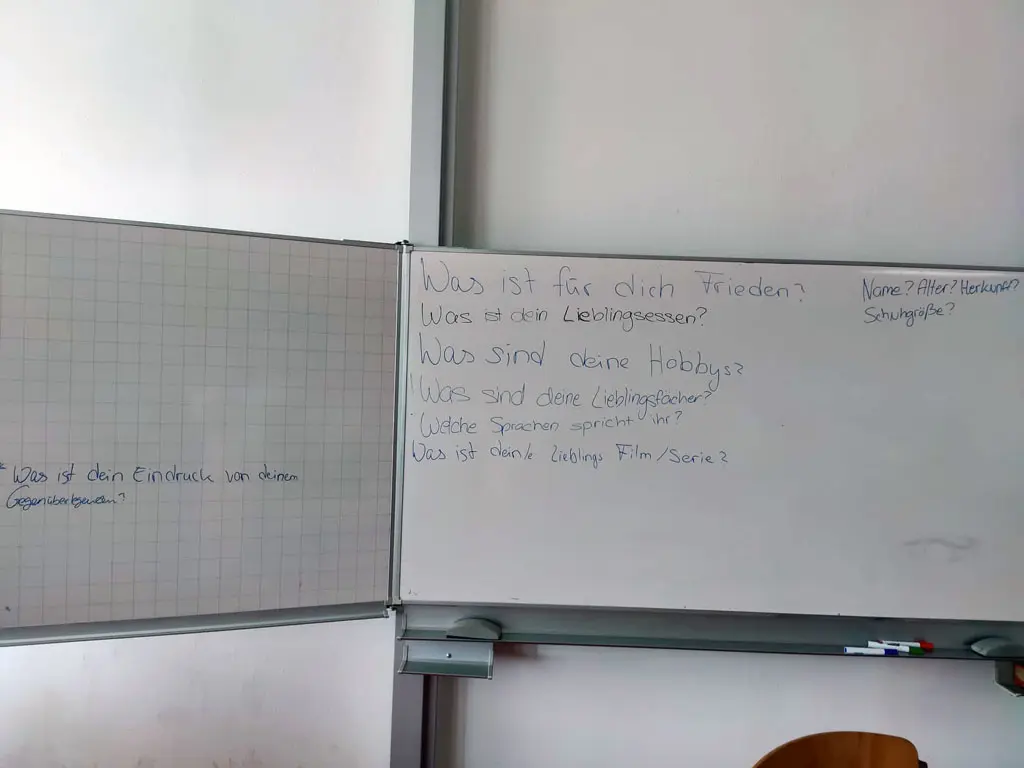 * Was ist dein Eindruck von deinem
Was ist für dich Frieden?
Was ist dein Lieblingsessen?
Was sind deine Hobbys?
Was sind deine Lieblingsfächer?
Welche Sprachen spricht ihr?
Was ist dein/e Lieblings Film/Serie?
Name? Alter? Herkunft?
Schuhgröße?